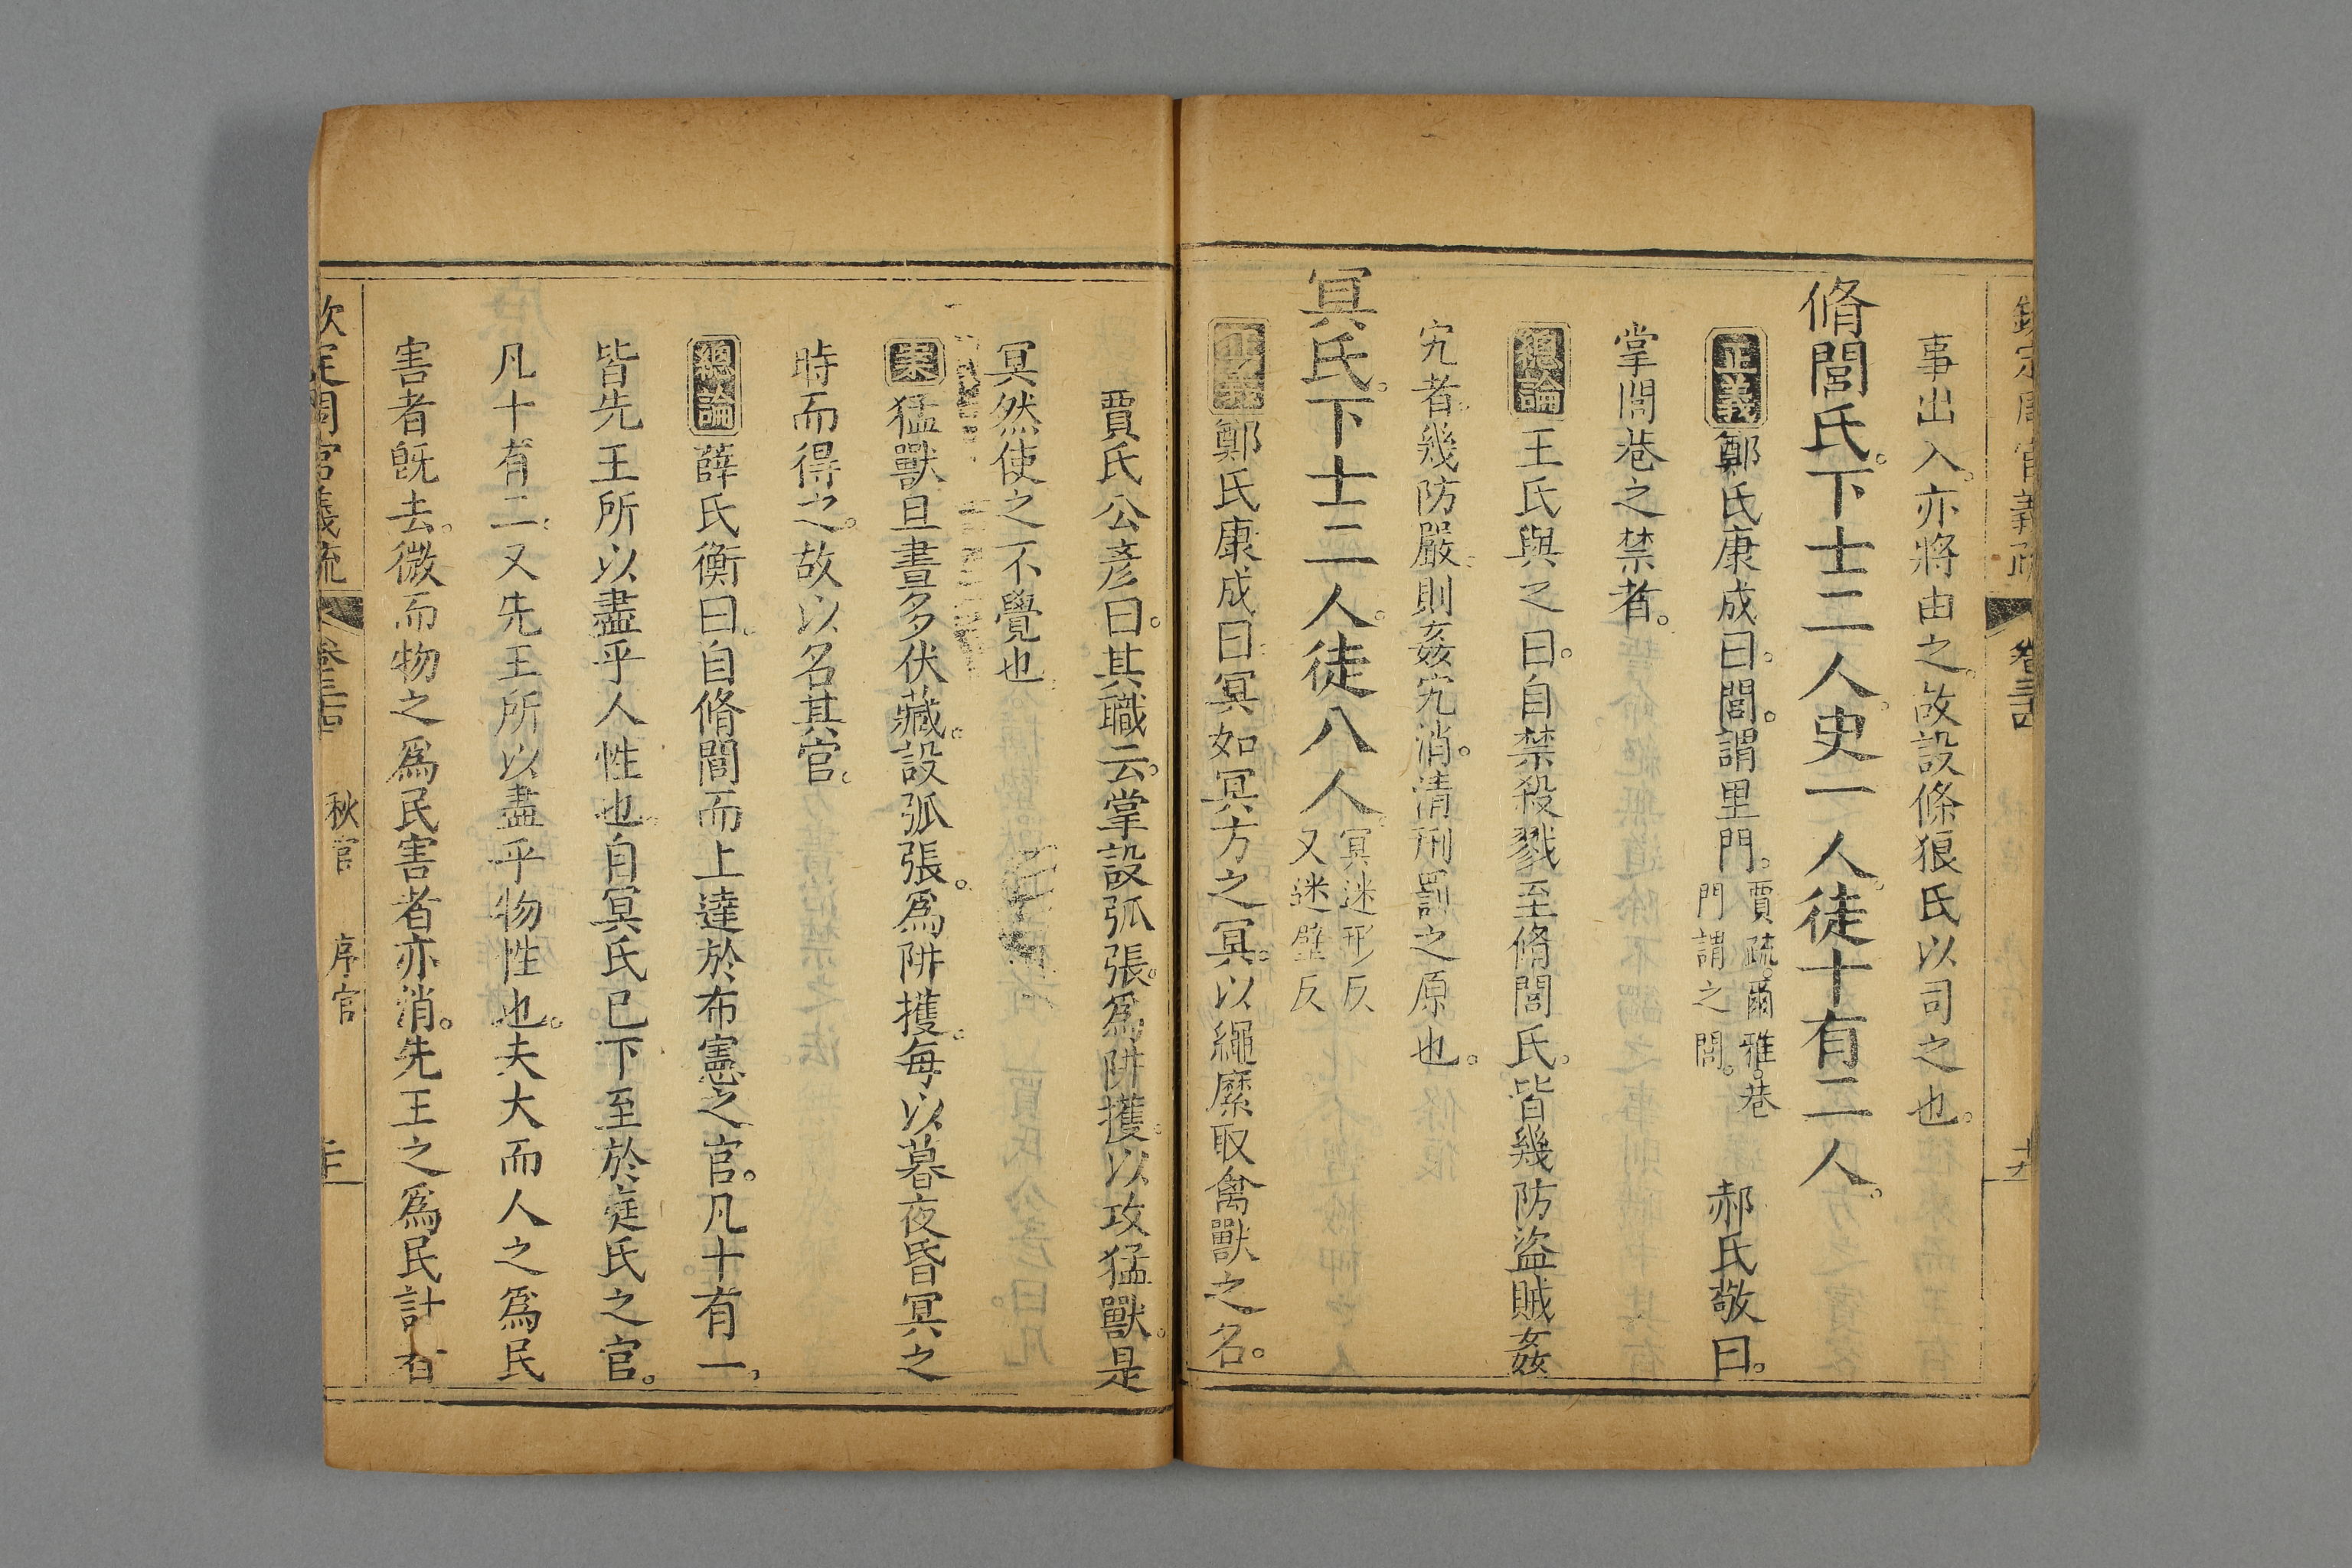 欽定周官義疏 卷三十四 十九
事出入。亦將由之。故設條狼氏以司之也。
脩閭氏。下士二人。史一人。徒十有二人。
正義 鄭氏康成曰。閭。謂里門。賈疏。爾雅。巷門謂之閎。 郝氏敬曰。
掌閭巷之禁者。
總論 王氏與之曰。自禁殺戮至脩閭氏。皆幾防盜賊姦
宄者。幾防嚴。則姦宄消。清刑罰之原也。
冥氏。下士二人。徒八人。冥迷形反又迷歷反
正義 鄭氏康成曰。冥如冥方之冥。以繩縻取禽獸之名。
賈氏公彥曰。其職云。掌設弧張。為阱擭。以攻猛獸。是
冥然使之不覺也
案 猛獸旦晝多伏藏。設弧張。為阱擭。每以暮夜昏冥之
時而得之。故以名其官。
總論 薛氏衡曰。自脩閭而上達於布憲之官。凡十有一。
皆先王所以盡乎人性也。自冥氏已下至於庭氏之官。
凡十有二。又先王所以盡乎物性也。夫大而人之為民
害者旣去。微而物之為民害者亦消。先王之為民計者
欽定周官義疏 卷三十四 秋官 序官 二十